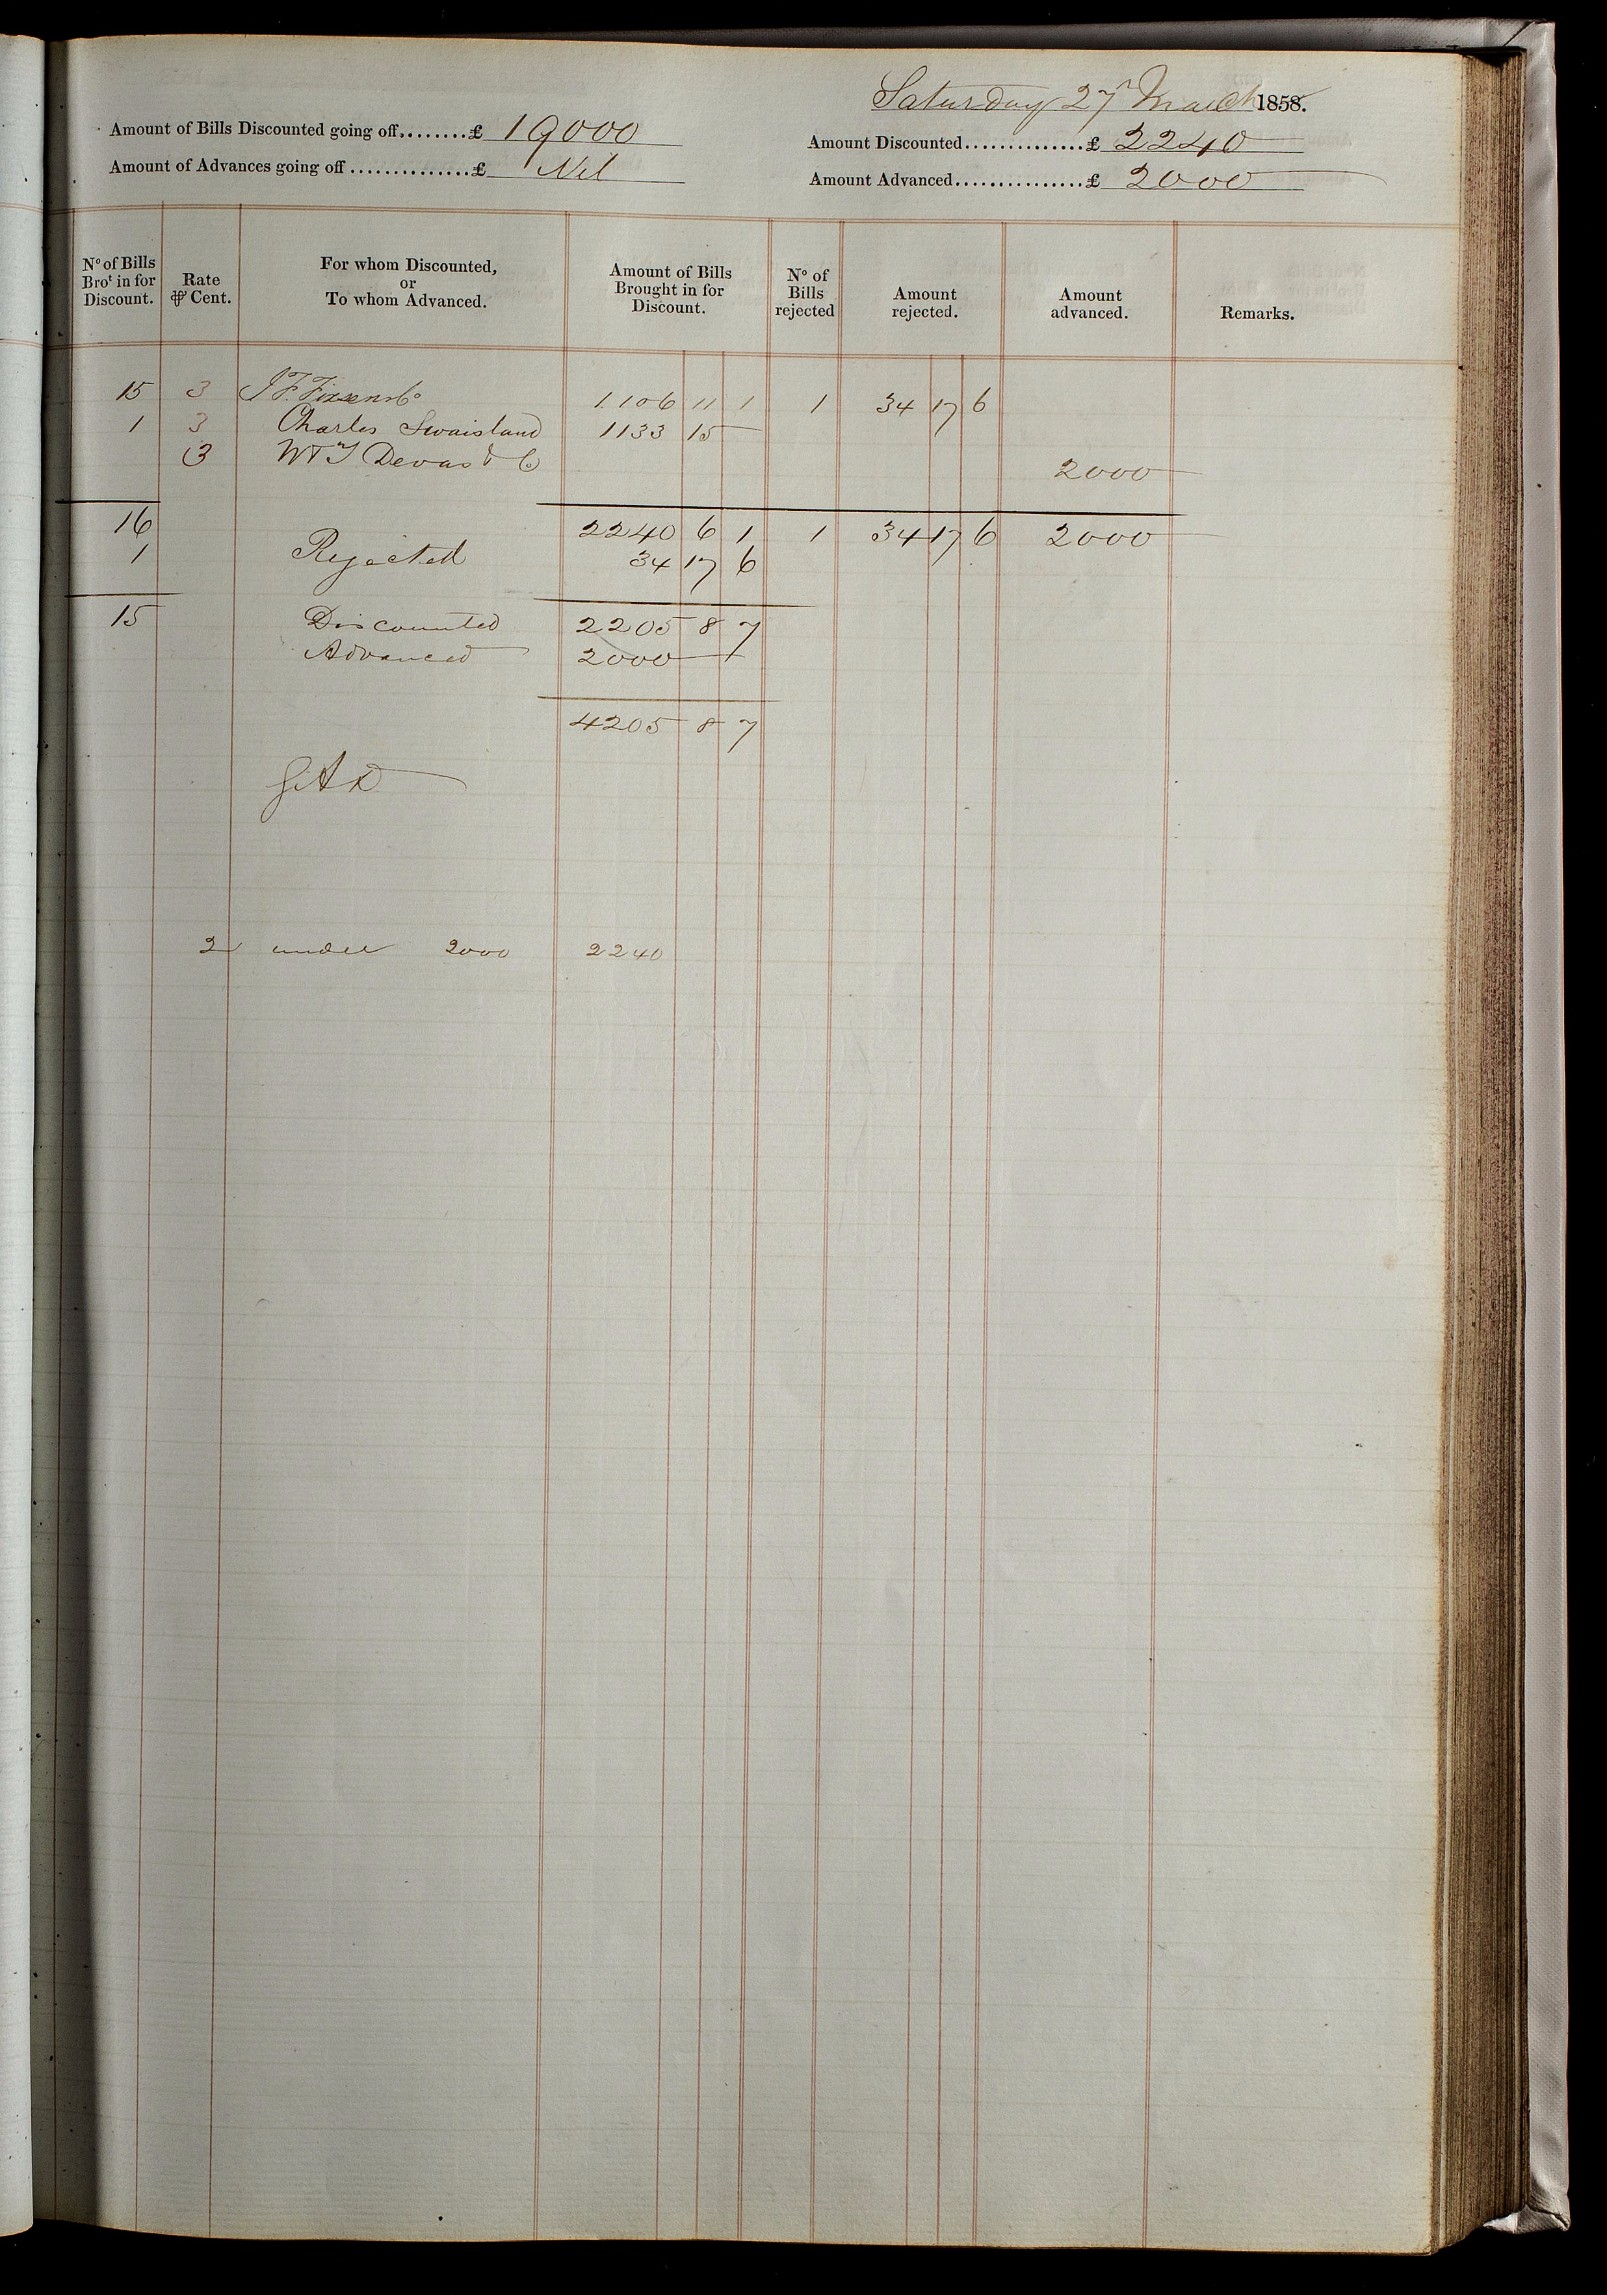 Saturday 27th March 1858.
Amount of Bills Discounted going off........£ 19000
Amount Discounted..............£ 2240
Amount of Advances going off..............£ Nil
Amount Advanced...............£ 2000
No of Bills Brot in for Discount. Rate ⅌ Cent. For whom Discounted, or To whom Advanced. Amount of Bills Brought in for Discount. No of Bills rejected Amount rejected. Amount advanced. Remarks.
15 3 J F. Fixsen & Co 1106 11 1 1 34 17 6
1 3 Charles Swaisland 1133 15 –
3 W & T Devas & Co 2000
16 2240 6 1 1 34 17 6 2000
1 Rejected 34 17 6
15 Discounted 2205 8 7
Advanced 2000
4205 8 7
2 under 2000 2240